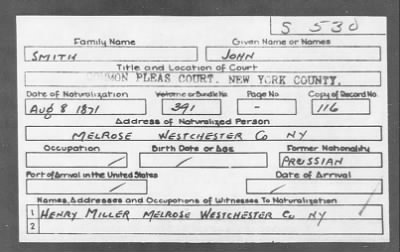 S 530
Family Name Given Name or Names
SMITH JOHN
Title and Location of Court
COMMON PLEAS COURT, NEW YORK COUNTY.
Date of Naturalization Volume or Bundle No. Page No Copy of Record No.
Aug 8 1871 391 - 116
Address of Naturalized Person
MELROSE WESTCHESTER Co NY
Occupation Birth Date or Age Former Nationality
/ / PRUSSIAN
Port of Arrival in the United States Date of Arrival
/ /
Names, Addresses and Occupations of Witnesses To Naturalization
1 HENRY MILLER MELROSE WESTCHESTER Co NY
2